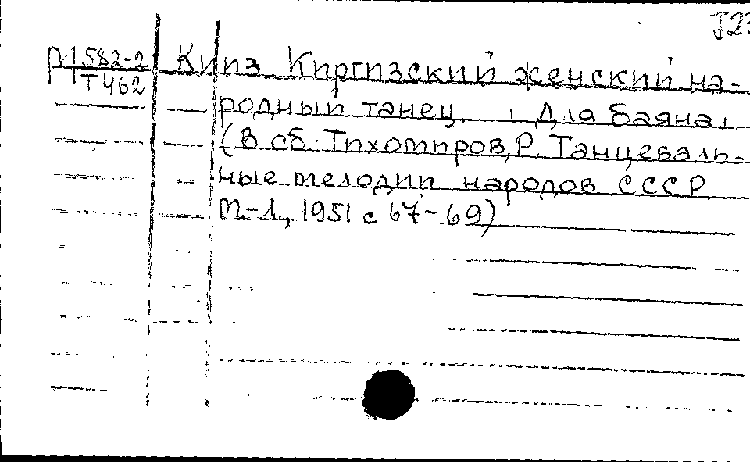 J23
М1582-2
Т462
Кииз Киргизский женский на-
родный танец. Для баяна.
(В сб: Тихомиров, Р. Танцеваль-
ные мелодии народов СССР
М-Л, 1951 с 67-69)